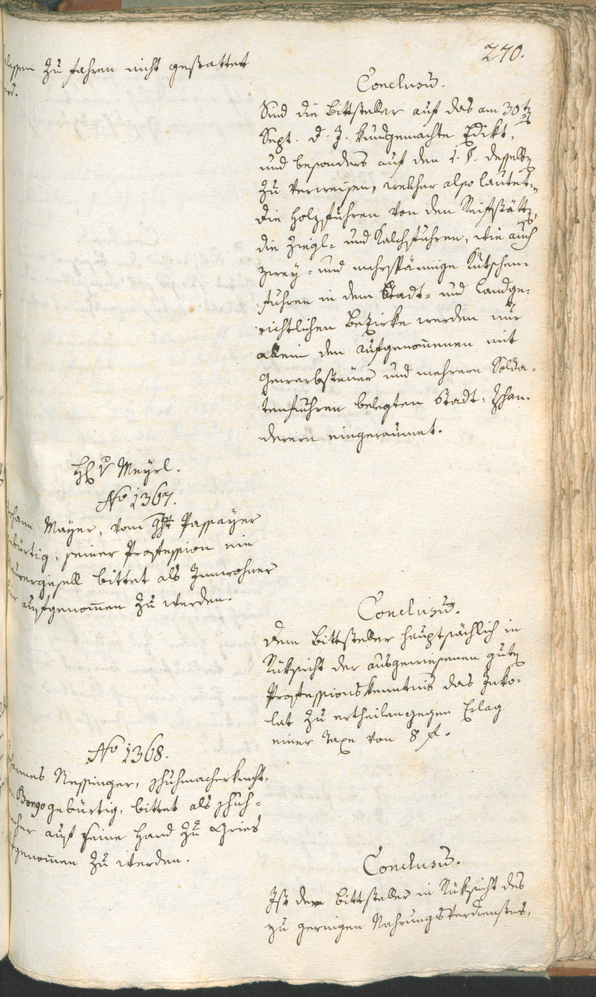 270.
zu fahren nicht gestattet
Conclusum.
Sind die Bittsteller auf das am 30t
Sept. d. J. kundgemachte Edikt,
und besonders auf den §. desselb
zu verweisen, welcher also lautet.
die Holzfuhren von den
die Ziegl- und Kalchfuhren, wie auch
zwey- und mehrspännige Kutschen-
fuhren in dem Stadt- und Landge-
richtlichen Bezirke werden nur
allein den aufgenommen mit
Gewerbsteuer und mehrern Solda-
tenfuhren belegten Stadt-
eingeraumet.
v Meyrl.
No 1367.
Mayer, vom Passayer
gebürtig, seiner Profession ein
bittet als Innwohner
aufgenommen zu werden.
Conclusum.
dem Bittsteller hauptsächlich in
Rüksicht der ausgewiesenen gute
Professionskenntnis das Inko-
lat zu ertheilen gegen Erlag
einer Taxe von 8 f.
No 1368.
Nessinger, Schuhmacherknecht,
Borgo gebürtig, bittet als Schuh-
auf seine Hand zu Gries
genommen zu werden.
Conclusum.
Ist der Bittsteller in Rüksicht des
zu geringen Nahrungsverdienstes,